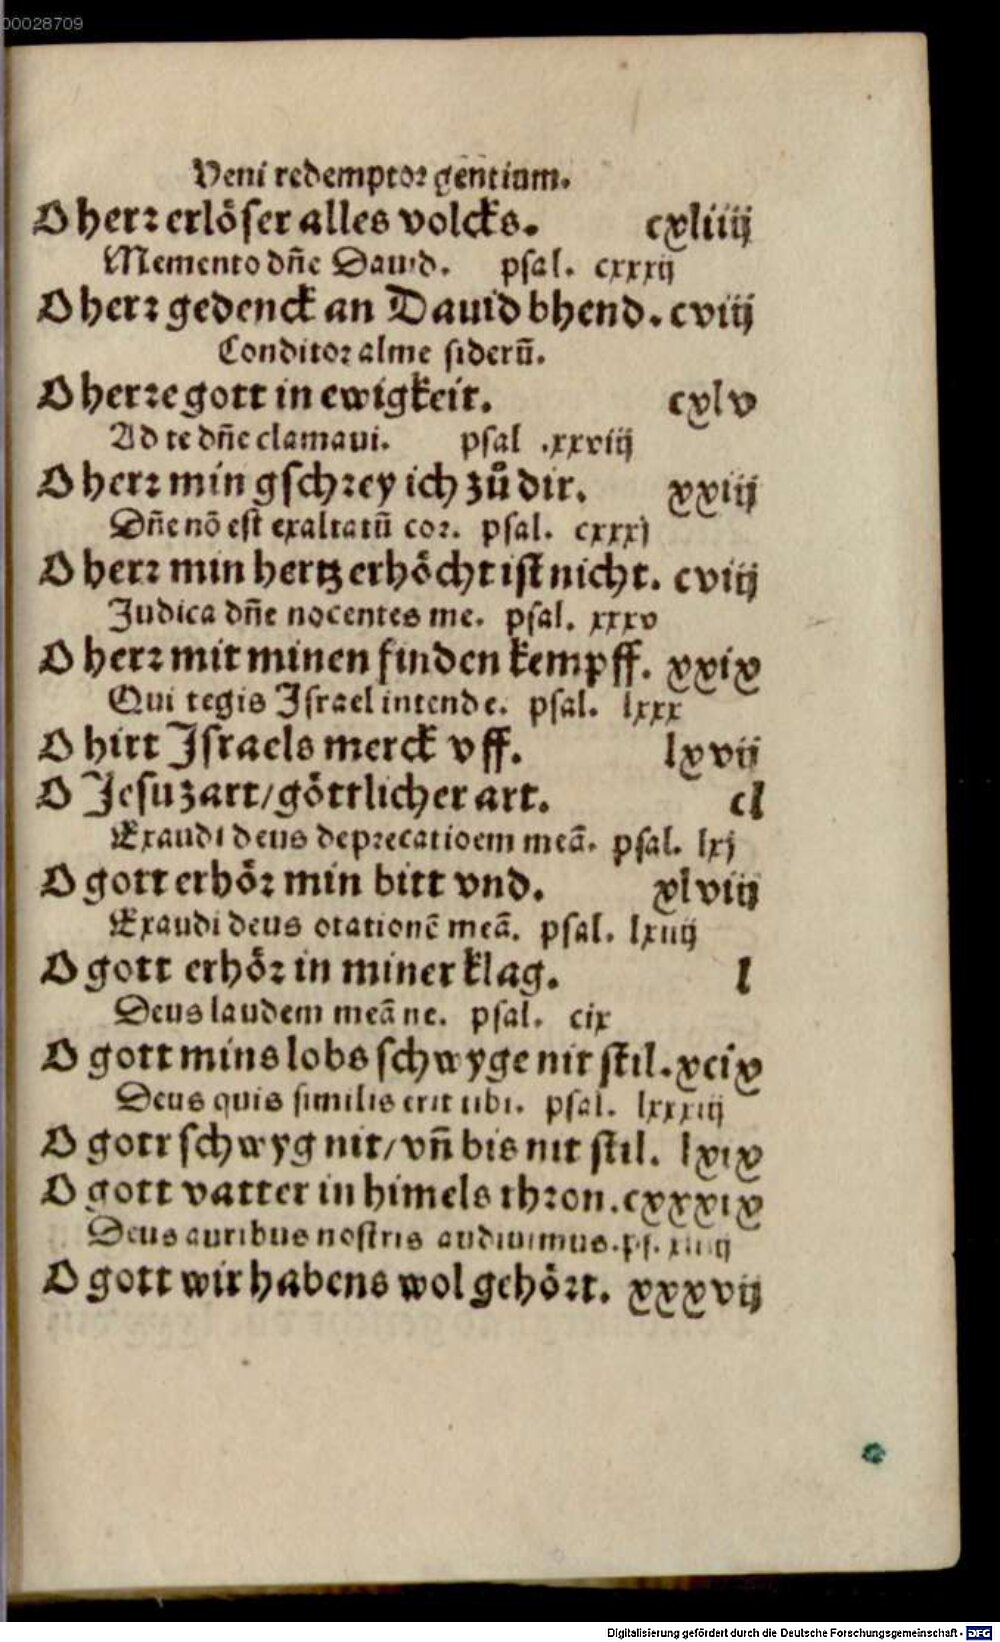 00028709
Veni redemptor gentium.
O herr erlöser alles volcks. cxliiij
Memento dñe Dauid. psal. cxxxij
O herr gedenck an Dauid bhend. cviij
Conditor alme siderū.
O herre gott in ewigkeit. cxlv
Ad te dñe clamaui. psal .xxviij
O herr min gschrey ich zů dir. xxiij
Dñe nō est exaltatū cor. psal. cxxxj
O herr min hertz erhöcht ist nicht. cviij
Judica dñe nocentes me. psal. xxxv
O herr mit minen finden kempff. xxix
Qui regis Israel intende. psal. lxxx
O hirt Israels merck vff. lxvij
O Jesu zart/göttlicher art. cl
Exaudi deus deprecatioem meā. psal. lxj
O gott erhör min bitt vnd. xlviij
Exaudi deus orationē meā. psal. lxiiij
O gott erhör in miner klag. l
Deus laudem meā ne. psal. cix
O gott mins lobs schwyge nit stil. xcix
Deus quis similis erit tibi. psal. lxxxiij
O gott schwyg nit/vñ bis nit stil. lxix
O gott vatter in himels thron. cxxxix
Deus auribus nostris audiuimus. ps. xliiij
O gott wir habens wol gehört. xxxvij
Digitalisierung gefördert durch die Deutsche Forschungsgemeinschaft - DFG